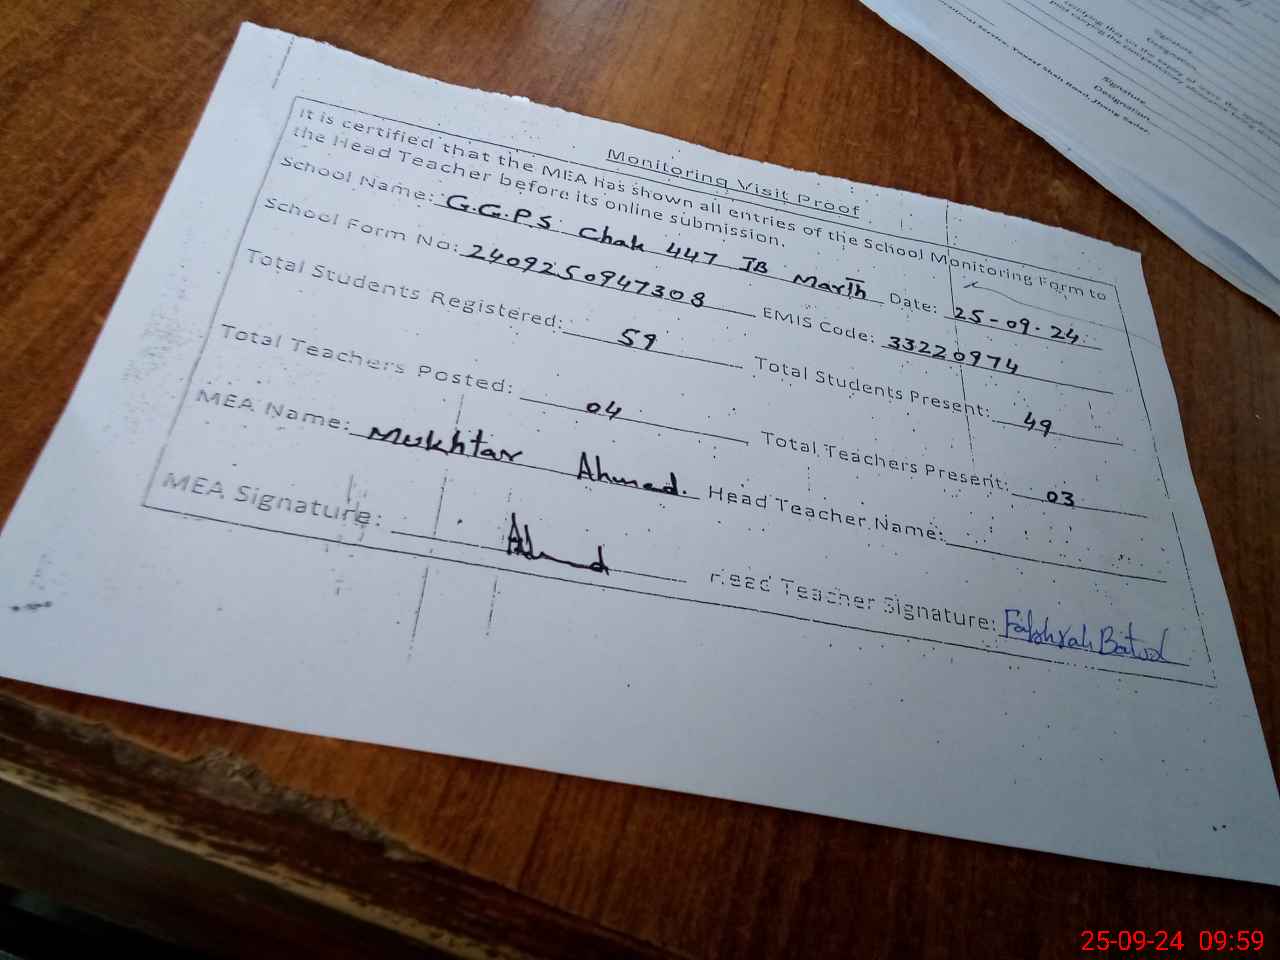 Monitoring Visit Proof
It is certified that the MEA has shown all entries of the School Monitoring Form to
the Head Teacher before its online submission.
School Name: G.G.P.S Chak 447 JB Marth Date: 25-09-24
School Form No: 2409250947308 EMIS Code: 33220974
Total Students Registered: 59 Total Students Present: 49
Total Teachers Posted: 04 Total Teachers Present: 03
MEA Name: Mukhtar Ahmad. Head Teacher Name:
MEA Signature: Ahmad Head Teacher Signature: Fakhrah Batool
Signature
Designation
Signature
Designation
Yousaf Shah Road, Jhang Sadar.
25-09-24 09:59